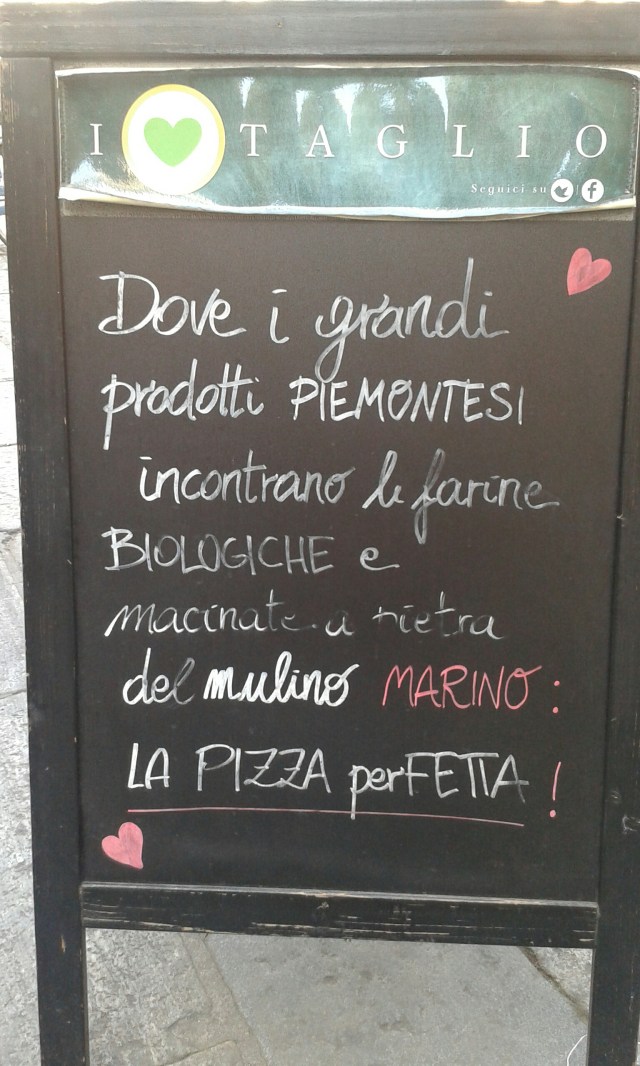 I TAGLIO
Seguici su
Dove i grandi
prodotti PIEMONTESI
incontrano le farine
BIOLOGICHE e
macinate a pietra
del mulino MARINO:
LA PIZZA perFETTA!